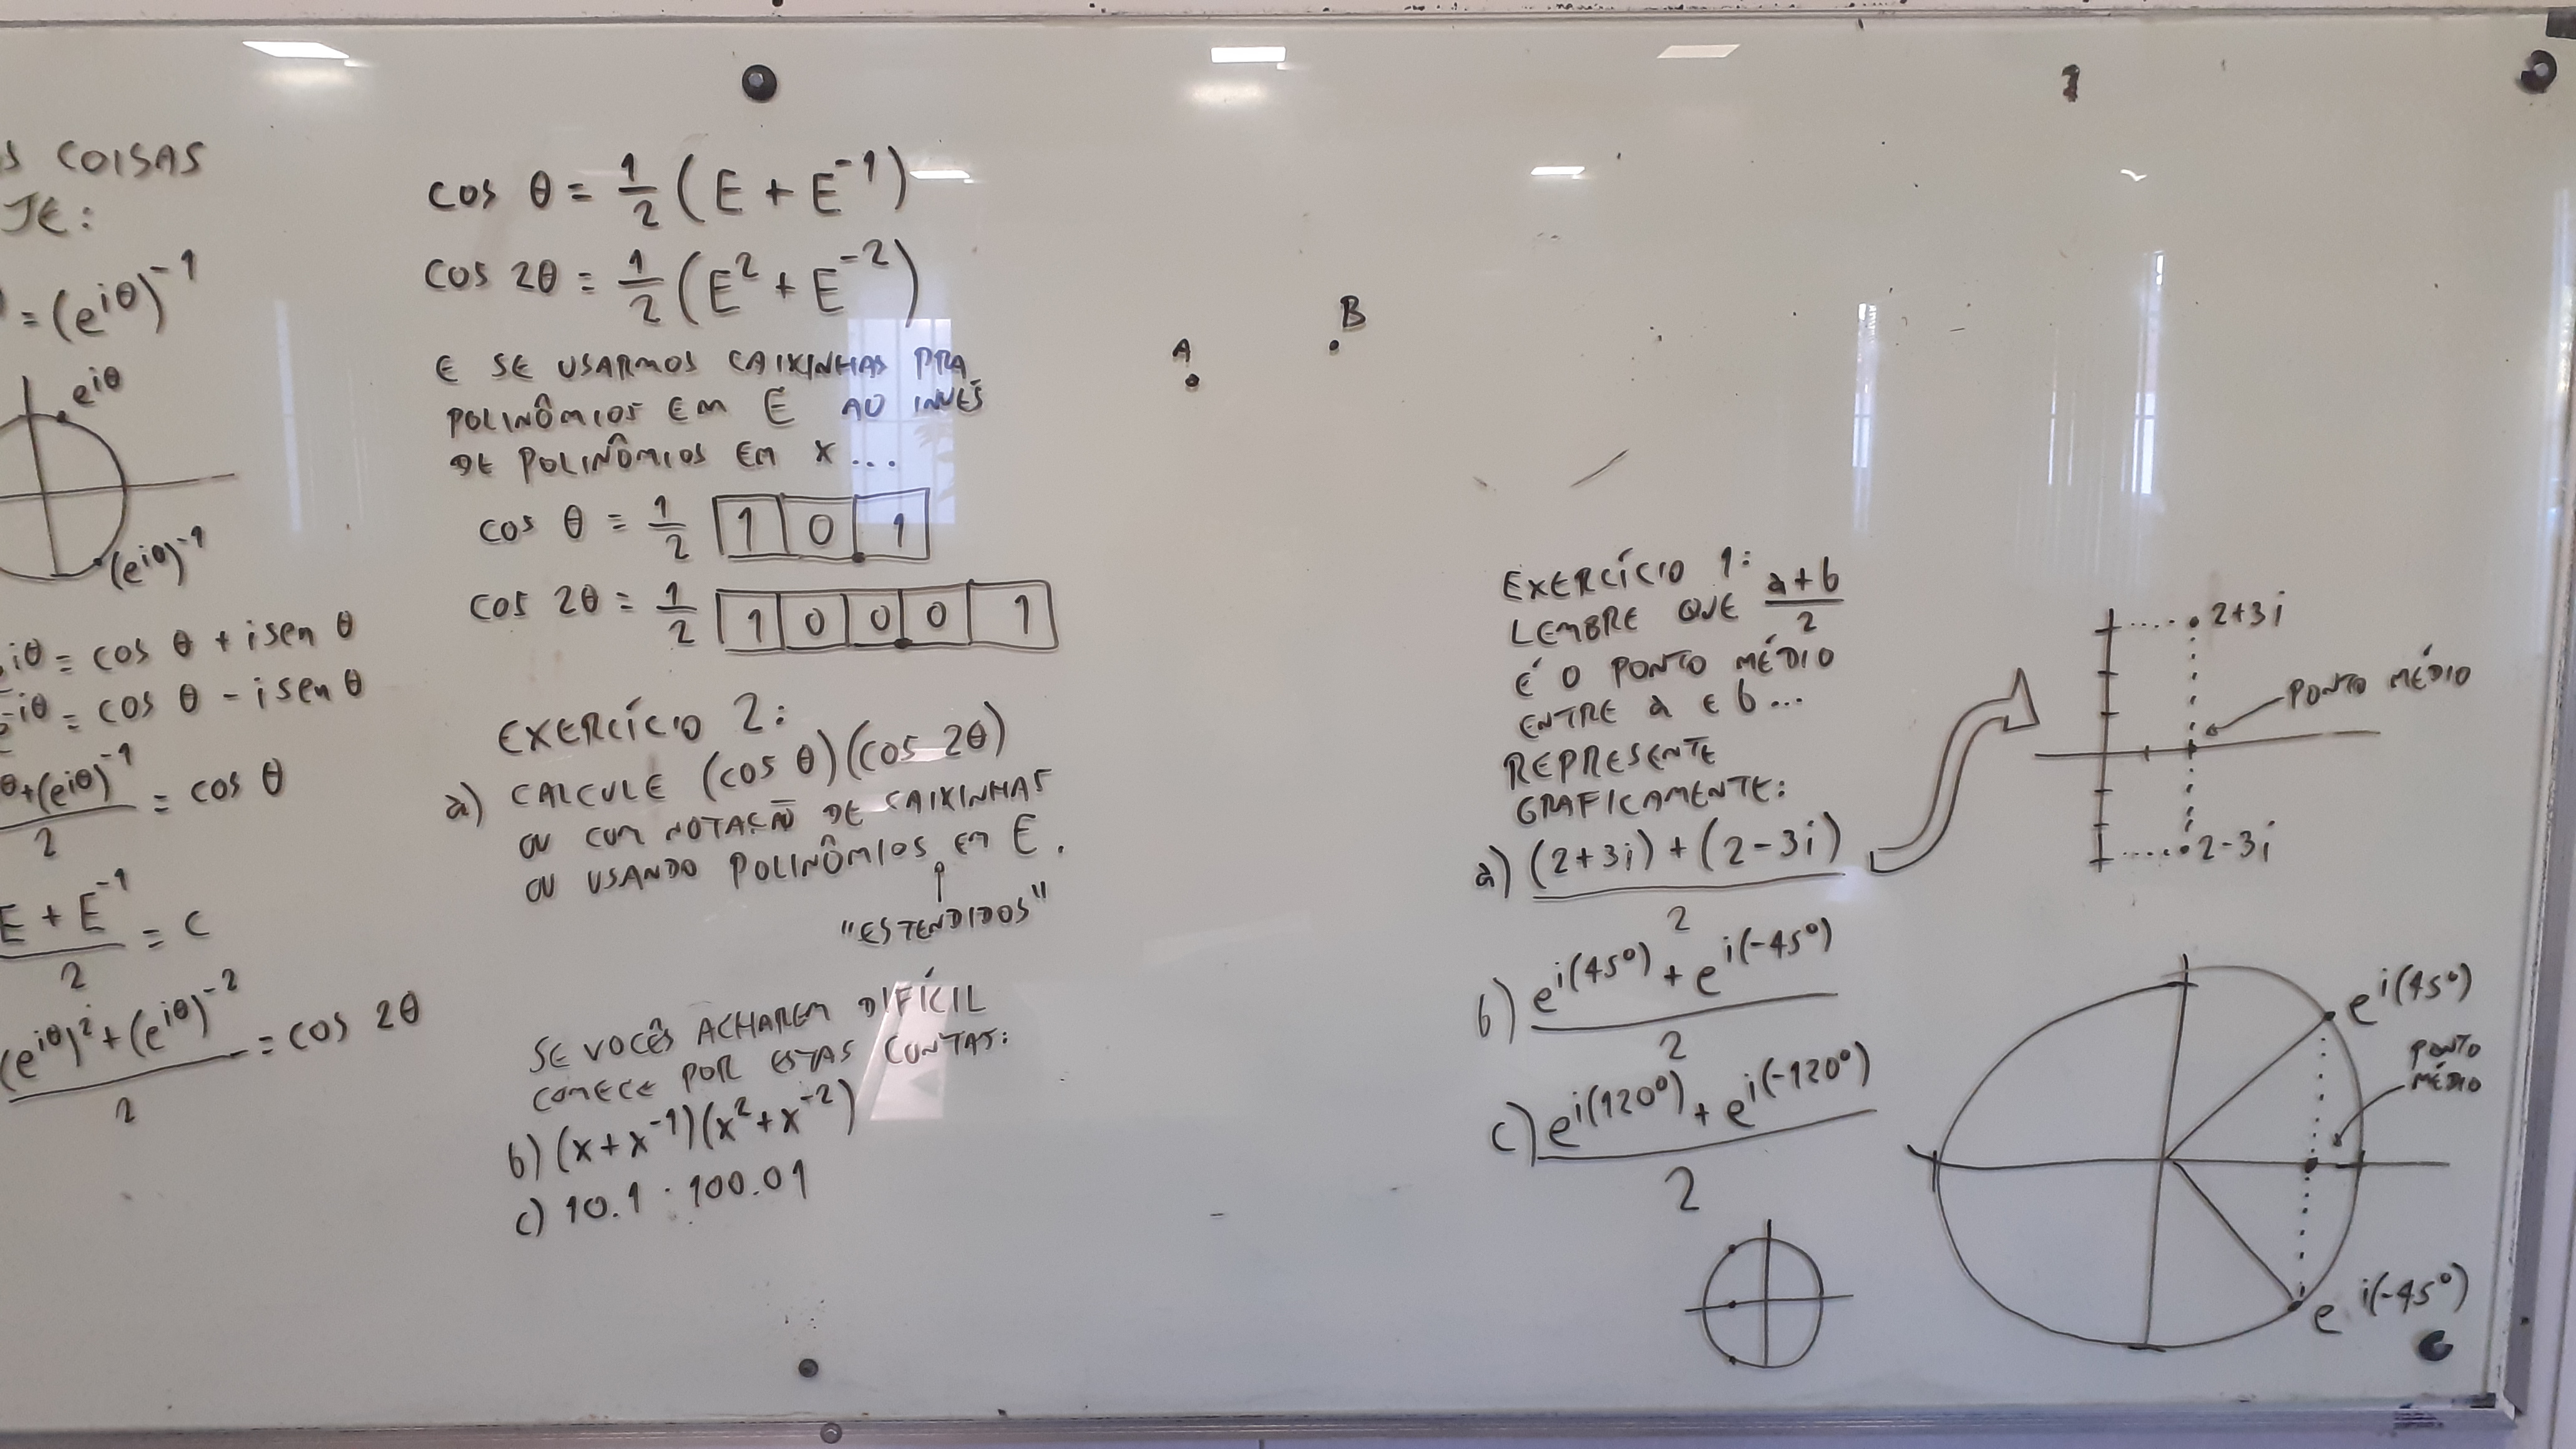 S COISAS
JE:
= (e^{iθ})^{-1}
e^{iθ}
(e^{iθ})^{-1}
iθ = cos θ + i sen θ
-iθ = cos θ - i sen θ
θ + (e^{iθ})^{-1} / 2 = cos θ
E + E^{-1} / 2 = c
(e^{iθ})^2 + (e^{iθ})^{-2} / 2 = cos 2θ
cos θ = 1/2 (E + E^{-1})
cos 2θ = 1/2 (E^2 + E^{-2})
E SE USARMOS CAIXINHAS PRA
POLINÔMIOS EM E AO INVÉS
DE POLINÔMIOS EM x ...
cos θ = 1/2 1 0 . 1
cos 2θ = 1/2 1 0 0 . 0 1
EXERCÍCIO 2:
a) CALCULE (cos θ)(cos 2θ)
OU COM NOTAÇÃO DE CAIXINHAS
OU USANDO POLINÔMIOS EM E.
"ESTENDIDOS"
SE VOCÊS ACHAREM DIFÍCIL
COMECE POR ESTAS CONTAS:
b) (x + x^{-1})(x^2 + x^{-2})
c) 10.1 · 100.01
A
B
EXERCÍCIO 1:
LEMBRE QUE a+b / 2
É O PONTO MÉDIO
ENTRE a E b...
REPRESENTE
GRAFICAMENTE:
a) (2+3i) + (2-3i) / 2
b) e^{i(45°)} + e^{i(-45°)} / 2
c) e^{i(120°)} + e^{i(-120°)} / 2
2+3i
PONTO MÉDIO
2-3i
e^{i(45°)}
PONTO
MÉDIO
e^{i(-45°)}